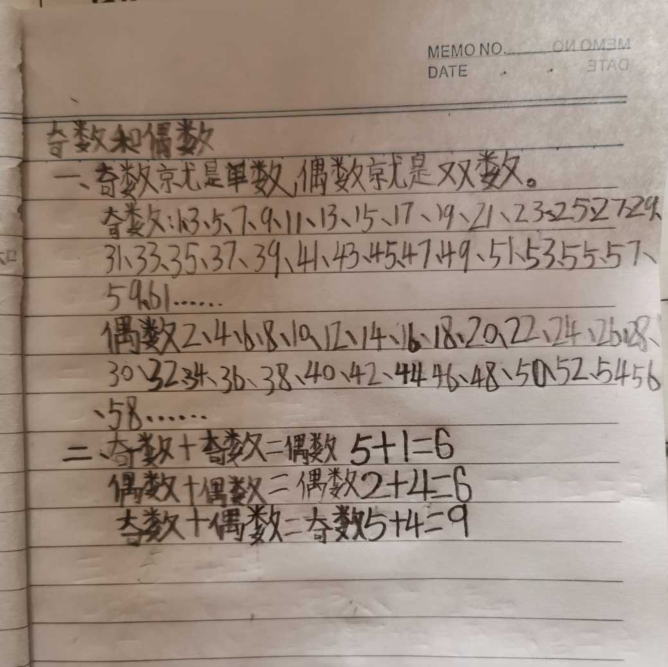 MEMO NO.
DATE
奇数和偶数
一、奇数就是单数,偶数就是双数。
奇数:1、3、5、7、9、11、13、15、17、19、21、23、25、27、29、
31、33、35、37、39、41、43、45、47、49、51、53、55、57、
59、61……
偶数2、4、6、8、10、12、14、16、18、20、22、24、26、28、
30、32、34、36、38、40、42、44、46、48、50、52、54、56
、58……
二、奇数+奇数=偶数 5+1=6
偶数+偶数=偶数2+4=6
奇数+偶数=奇数5+4=9